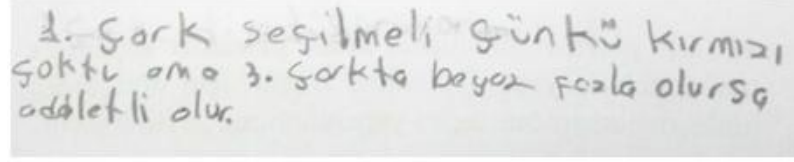 1. Çark seçilmeli çünkü kırmızı
çoktu ama 3. çarkta beyaz fazla olursa
adaletli olur.